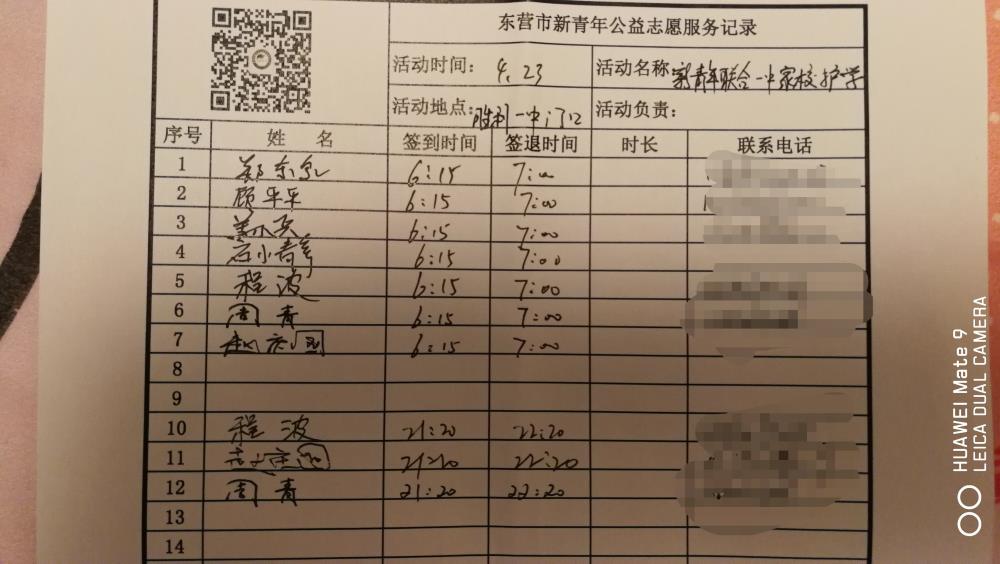 东营市新青年公益志愿服务记录
活动时间: 4.23 活动名称 新青年联合一中家校护学
活动地点: 胜利一中门口 活动负责:
序号 姓 名 签到时间 签退时间 时长 联系电话
1 6:15 7:00
2 顾平平 6:15 7:00
3 6:15 7:00
4 石小青 6:15 7:00
5 程波 6:15 7:00
6 周青 6:15 7:00
7 赵庆国 6:15 7:00
8
9
10 程波 21:20 22:20
11 21:20 22:20
12 周青 21:20 22:20
13
14
HUAWEI Mate 9
LEICA DUAL CAMERA